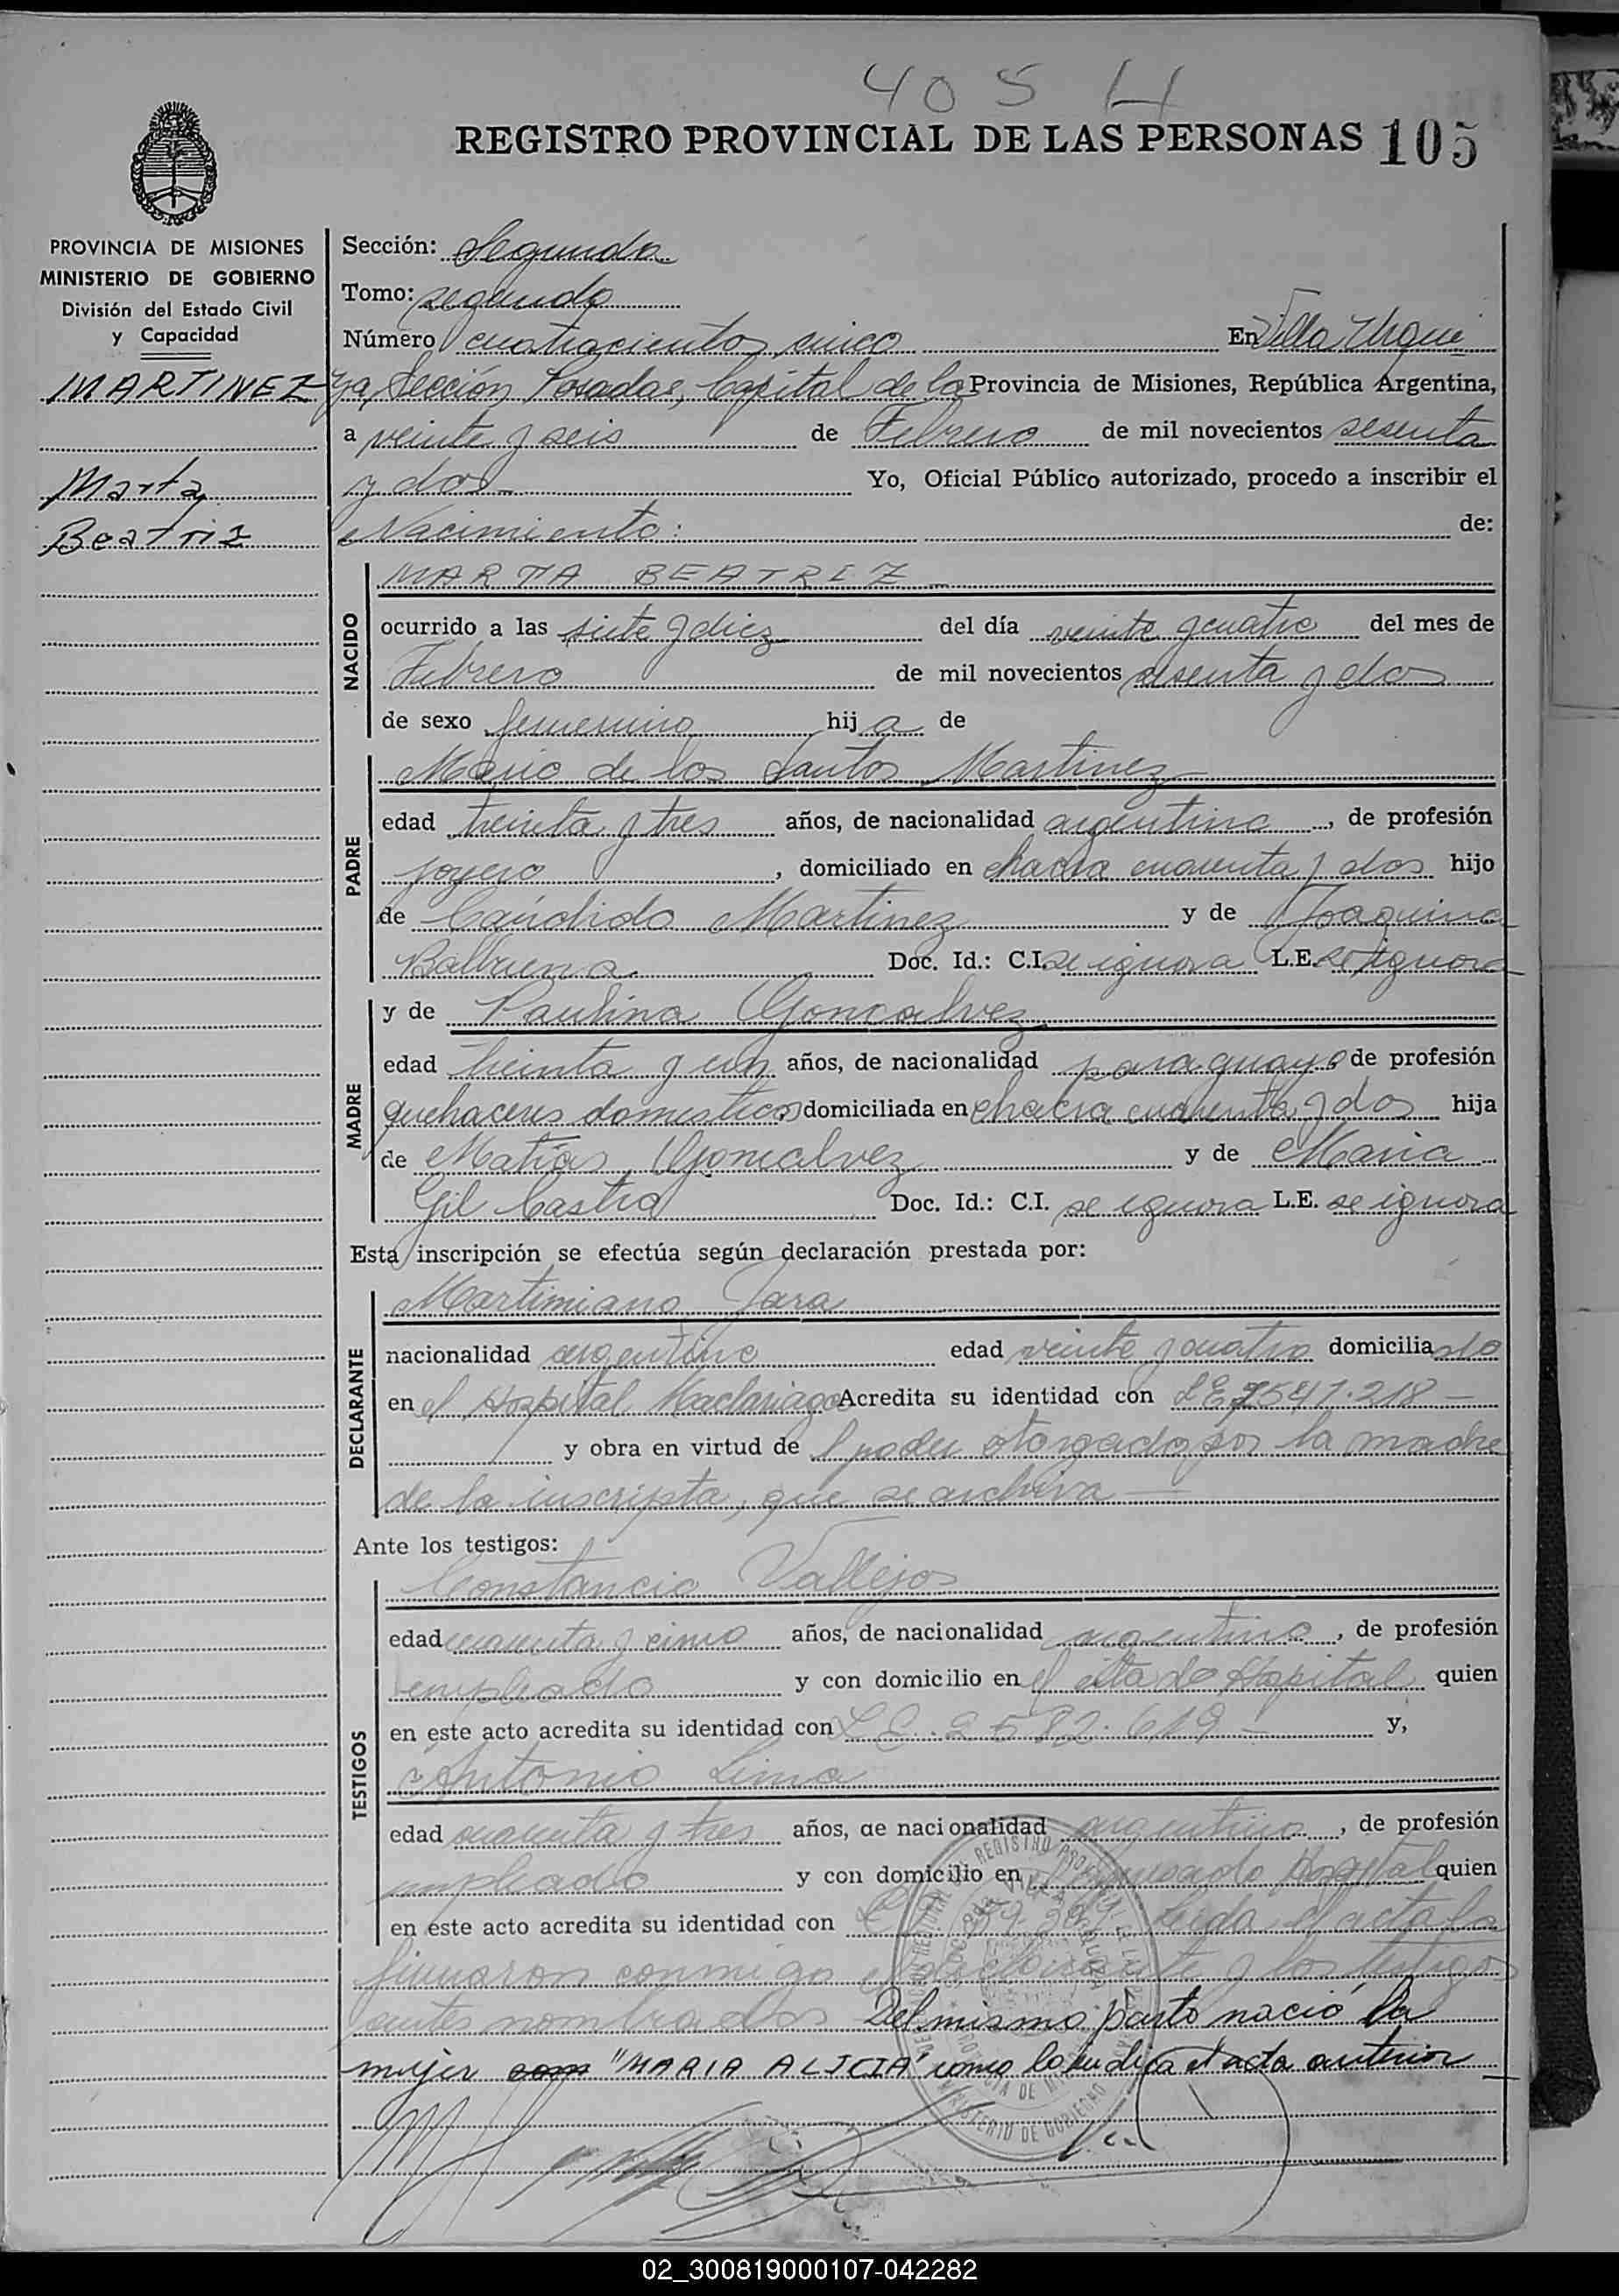 405 H
REGISTRO PROVINCIAL DE LAS PERSONAS 105
PROVINCIA DE MISIONES
MINISTERIO DE GOBIERNO
División del Estado Civil
y Capacidad
MARTINEZ
Marta
Beatriz
Sección: Segunda
Tomo: segundo
Número cuatrocientos cinco En Villa Urqui
za, Sección Posadas, Capital de la Provincia de Misiones, República Argentina,
a veinte y seis de Febrero de mil novecientos sesenta
y dos Yo, Oficial Público autorizado, procedo a inscribir el
Nacimiento: de:
NACIDO
MARTA BEATRIZ
ocurrido a las siete y diez del día veinte y cuatro del mes de
Febrero de mil novecientos sesenta y dos
de sexo femenino hija de
PADRE
Mario de los Santos Martinez
edad treinta y tres años, de nacionalidad argentina, de profesión
joyero, domiciliado en chacra cuarenta y dos hijo
de Cándido Martinez y de Joaquina
Balbuena Doc. Id.: C.I. se ignora L.E. se ignora
MADRE
y de Paulina Gonzalvez
edad treinta y un años, de nacionalidad paraguaya de profesión
quehaceres domesticos domiciliada en chacra cuarenta y dos hija
de Matías Gonzalvez y de Maria
Gil Castro Doc. Id.: C.I. se ignora L.E. se ignora
Esta inscripción se efectúa según declaración prestada por:
DECLARANTE
Martimiano Jara
nacionalidad argentino edad veinte y cuatro domiciliado
en el Hospital Madariaga Acredita su identidad con L.E. 7541.218
y obra en virtud del poder otorgado por la madre
de la inscripta, que se archiva
Ante los testigos:
TESTIGOS
Constancio Vallejos
edad cuarenta y cinco años, de nacionalidad argentino, de profesión
empleado y con domicilio en el citado Hospital quien
en este acto acredita su identidad con L.E. 2582.619 y,
Antonio Lima
edad cuarenta y tres años, de nacionalidad argentino, de profesión
empleado y con domicilio en Hospital quien
en este acto acredita su identidad con Leida el acta la
firmaron conmigo el declarante y los testigos
antes nombrados Del mismo parto nació la
mujer com "MARIA ALICIA" como lo indica el acta anterior
02_300819000107-042282